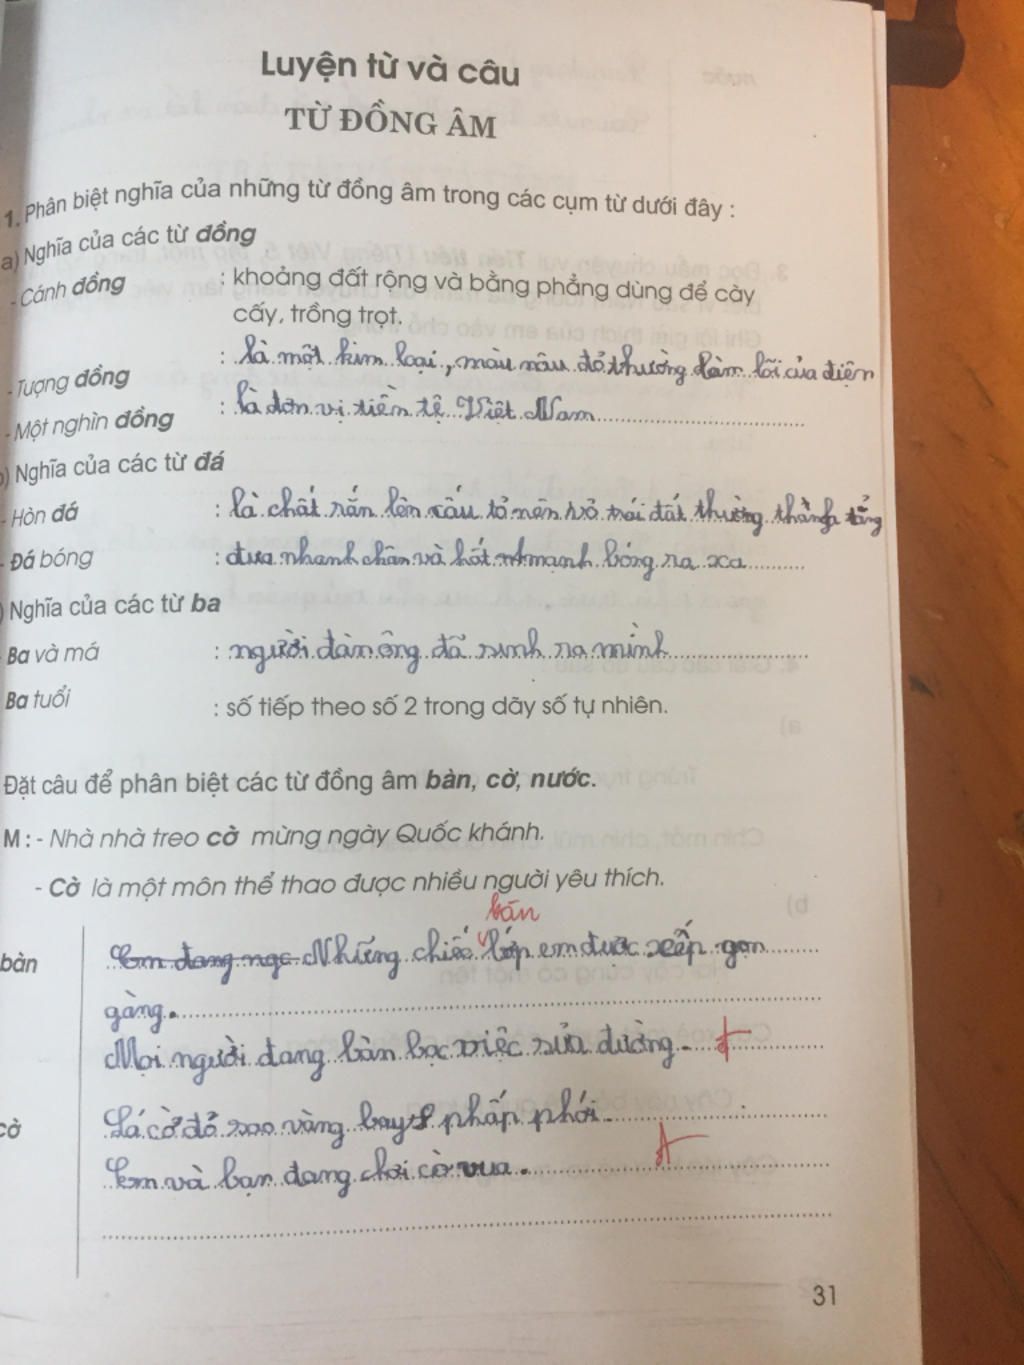 Luyện từ và câu
TỪ ĐỒNG ÂM
1. Phân biệt nghĩa của những từ đồng âm trong các cụm từ dưới đây :
a) Nghĩa của các từ đồng
- Cánh đồng : khoảng đất rộng và bằng phẳng dùng để cày
cấy, trồng trọt.
- Tượng đồng : là một kim loại, màu nâu đỏ thường làm lõi của điện
- Một nghìn đồng : là đơn vị tiền tệ Việt Nam
) Nghĩa của các từ đá
- Hòn đá : là chất rắn lên cấu tỏ nên vỏ trái đất thường thành tảng
- Đá bóng : đưa nhanh chân và hất mạnh bóng ra xa
) Nghĩa của các từ ba
Ba và má : người đàn ông đã sinh ra mình
Ba tuổi : số tiếp theo số 2 trong dãy số tự nhiên.
Đặt câu để phân biệt các từ đồng âm bàn, cờ, nước.
M : - Nhà nhà treo cờ mừng ngày Quốc khánh.
- Cờ là một môn thể thao được nhiều người yêu thích.
bàn
bàn Em đang ngc Những chiếc lớp em được xếp gọn
gàng.
Mọi người đang bàn bạc việc sửa đường.
cờ Lá cờ đỏ sao vàng bay phấp phới.
Em và bạn đang chơi cờ vua.
31